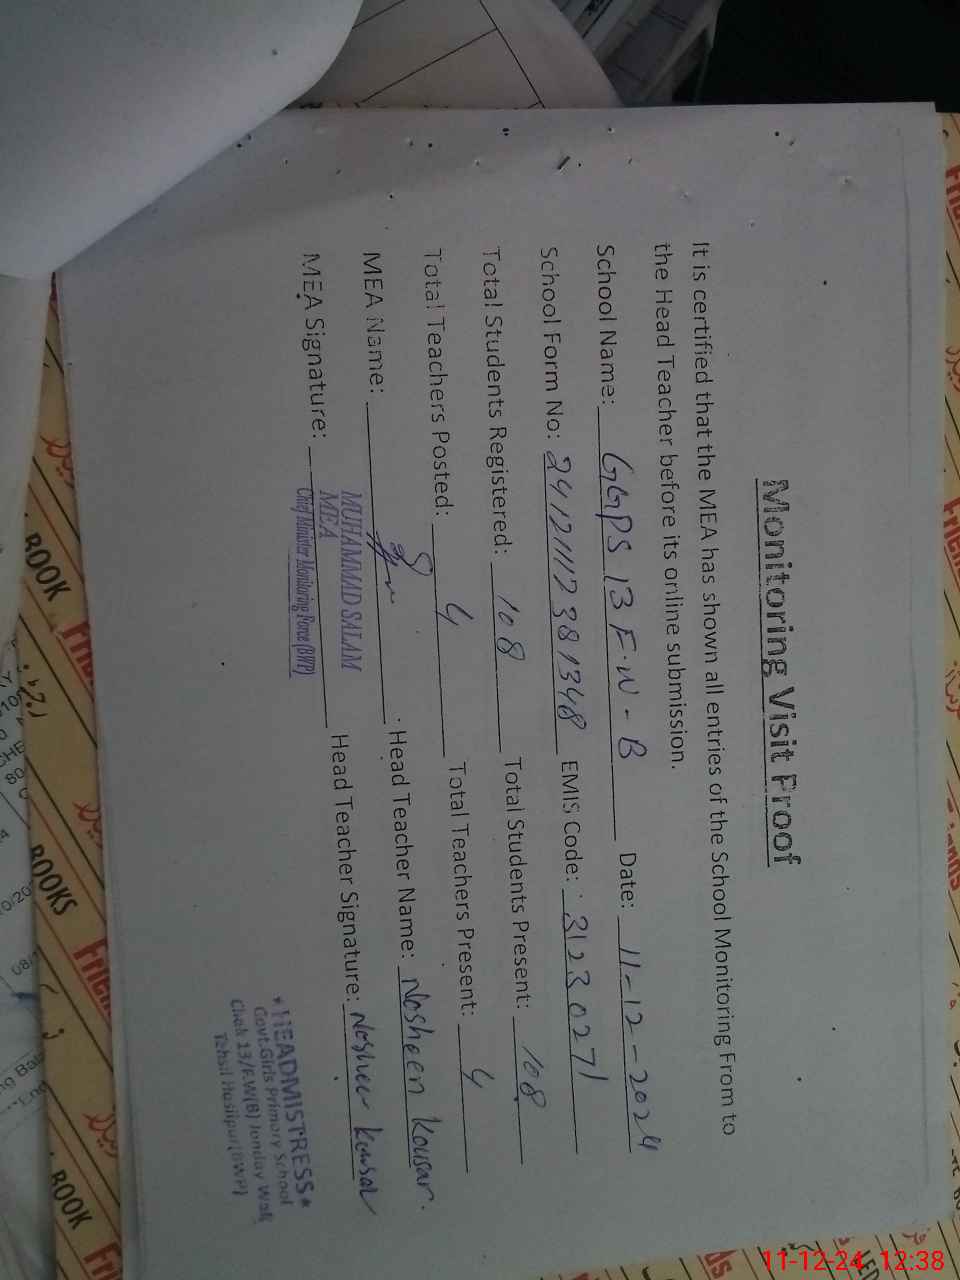 Monitoring Visit Proof
It is certified that the MEA has shown all entries of the School Monitoring From to
the Head Teacher before its online submission.
School Name: GGPS 13 F.W - B Date: 11-12-2024
School Form No: 2412111238 1348 EMIS Code: 31230271
Total Students Registered: 108 Total Students Present: 108
Total Teachers Posted: 4 Total Teachers Present: 4
MEA Name: Head Teacher Name: Nosheen Kousar.
MEA Signature: Head Teacher Signature: Nosheen Kousar
MUHAMMAD SALAM
MEA
Chief Minister Monitoring Force (BWP)
*HEADMISTRESS*
Govt.Girls Primary School
Chak 13/F.W(B)
Tehsil Hasilpur(BWP)
BOOK
BOOKS
BOOK
11-12-24 12:38